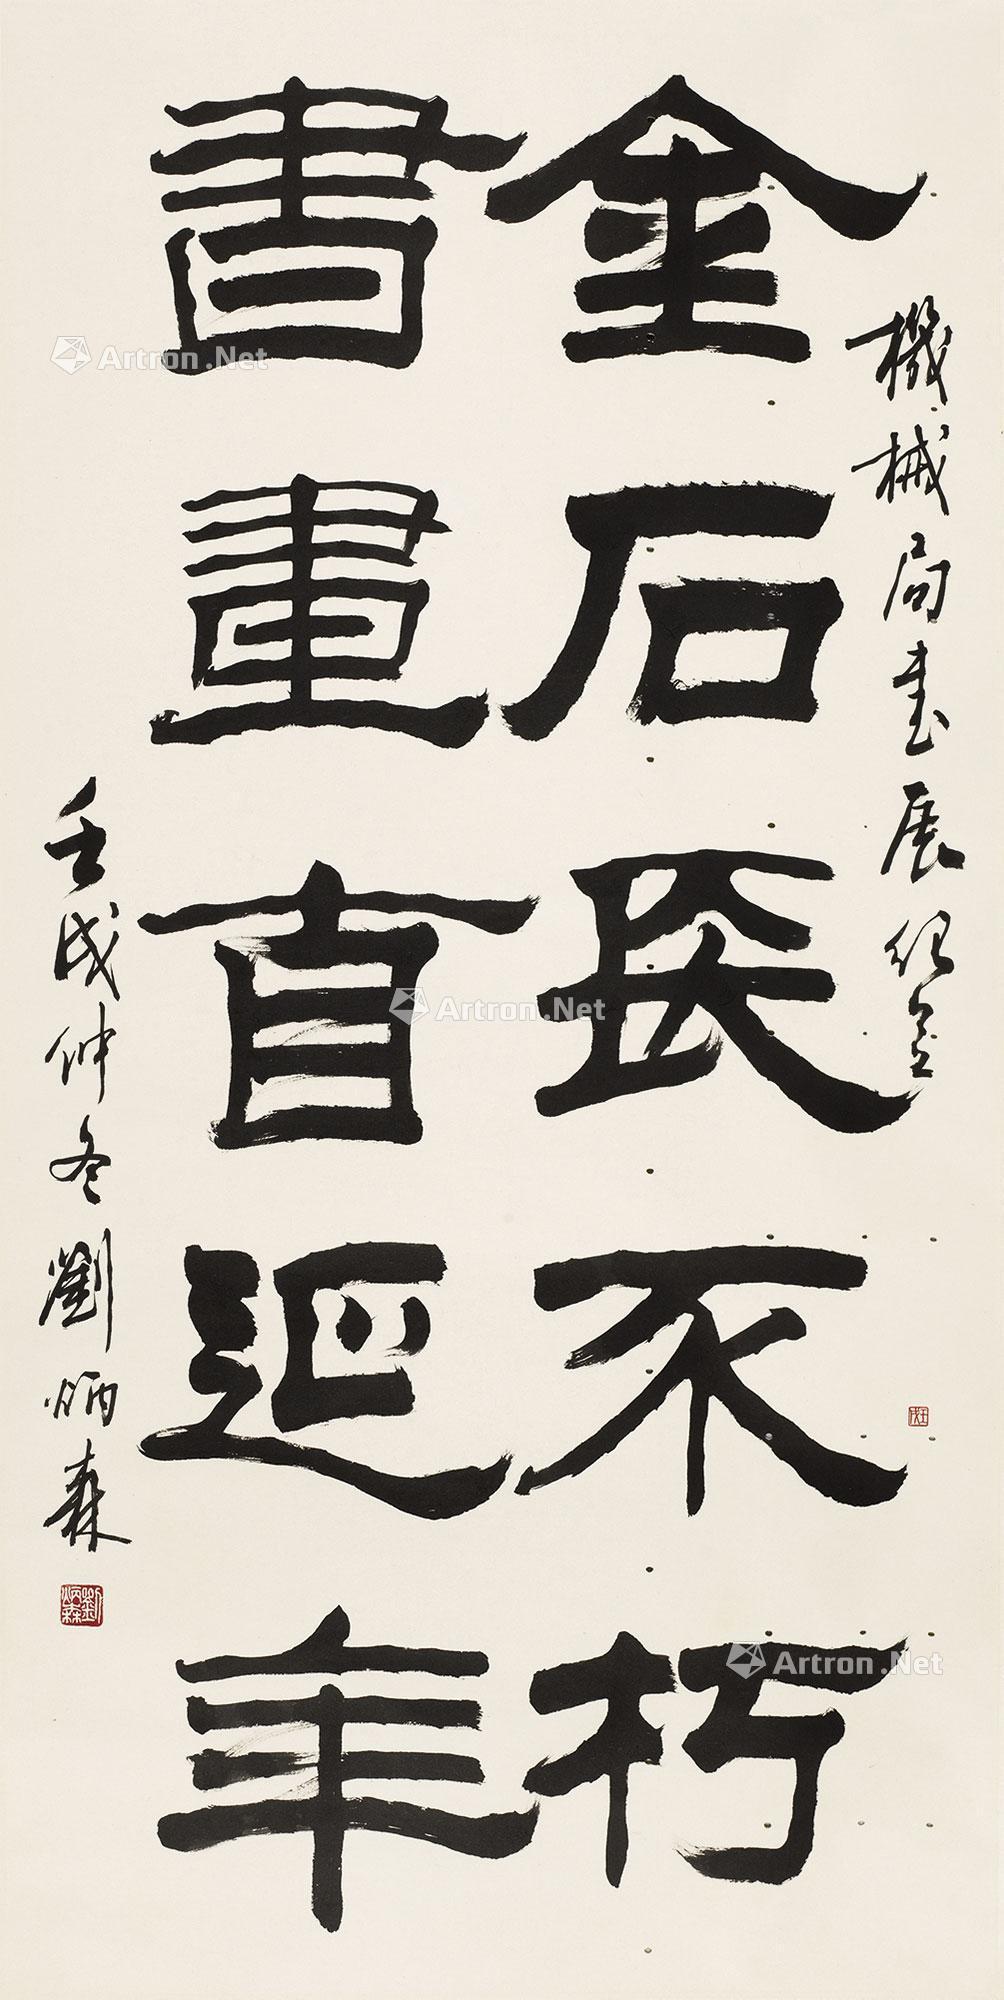 機械局書展紀念
金石長不朽
書畫自延年
壬戌仲冬劉炳森
劉炳森
壬戌
Artron.Net
Artron.Net
Artron.Net